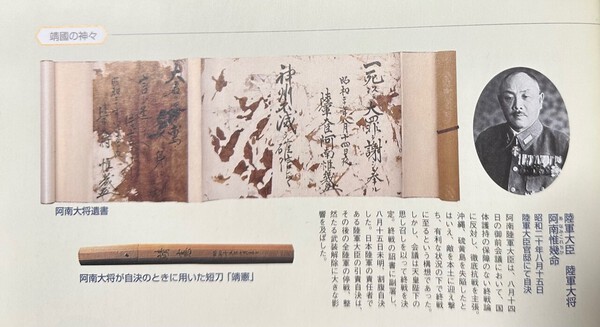 靖國の神々
一死以テ大罪ヲ謝シ奉ル
昭和二十年八月十四日夜
陸軍大臣 阿南惟幾
神州不滅ヲ確信シツツ
阿南大将遺書
阿南大将が自決のときに用いた短刀「靖憲」
陸軍大臣　陸軍大将
阿南惟幾命
昭和二十年八月十五日
陸軍大臣官邸にて自決
阿南陸軍大臣は、八月十四
日の御前会議において、国
体護持の保障のない終戦論
に反対し、徹底抗戦を主張。
沖縄、硫黄島を失陥したと
はいえ、敵を本土に迎え撃
ち、有利な状況の下で終戦
に至るという構想であった。
しかし、会議は天皇陛下の
思し召しを以って終戦を決
定。終戦の詔書に副署し、
八月十五日未明、割腹自決
した。日本陸軍の責任者で
ある陸軍大臣の引責自決は、
その後の全陸軍の停戦、整
然たる武装解除に大きな影
響を及ぼした。